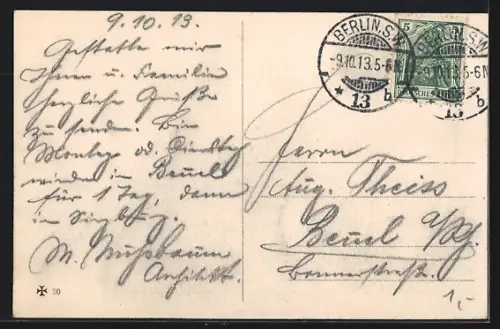 9.10.13.
Gestatte mir
Ihnen u. Familie
herzliche Grüße
zu senden. Bin
Montag od. Dienstag
wieder in Beuel
für 1 Tag, dann
in Siegburg.
M. Nussbaum
Architekt.
BERLIN.S.W.
-9.10.13.5-6N.
* 13 b
5
BERLIN.S.W.
-9.10.13.5-6N.
13 b
Herrn
Aug. Theiss
Beuel a/Rh.
Bonnerstraße.
50
1,-